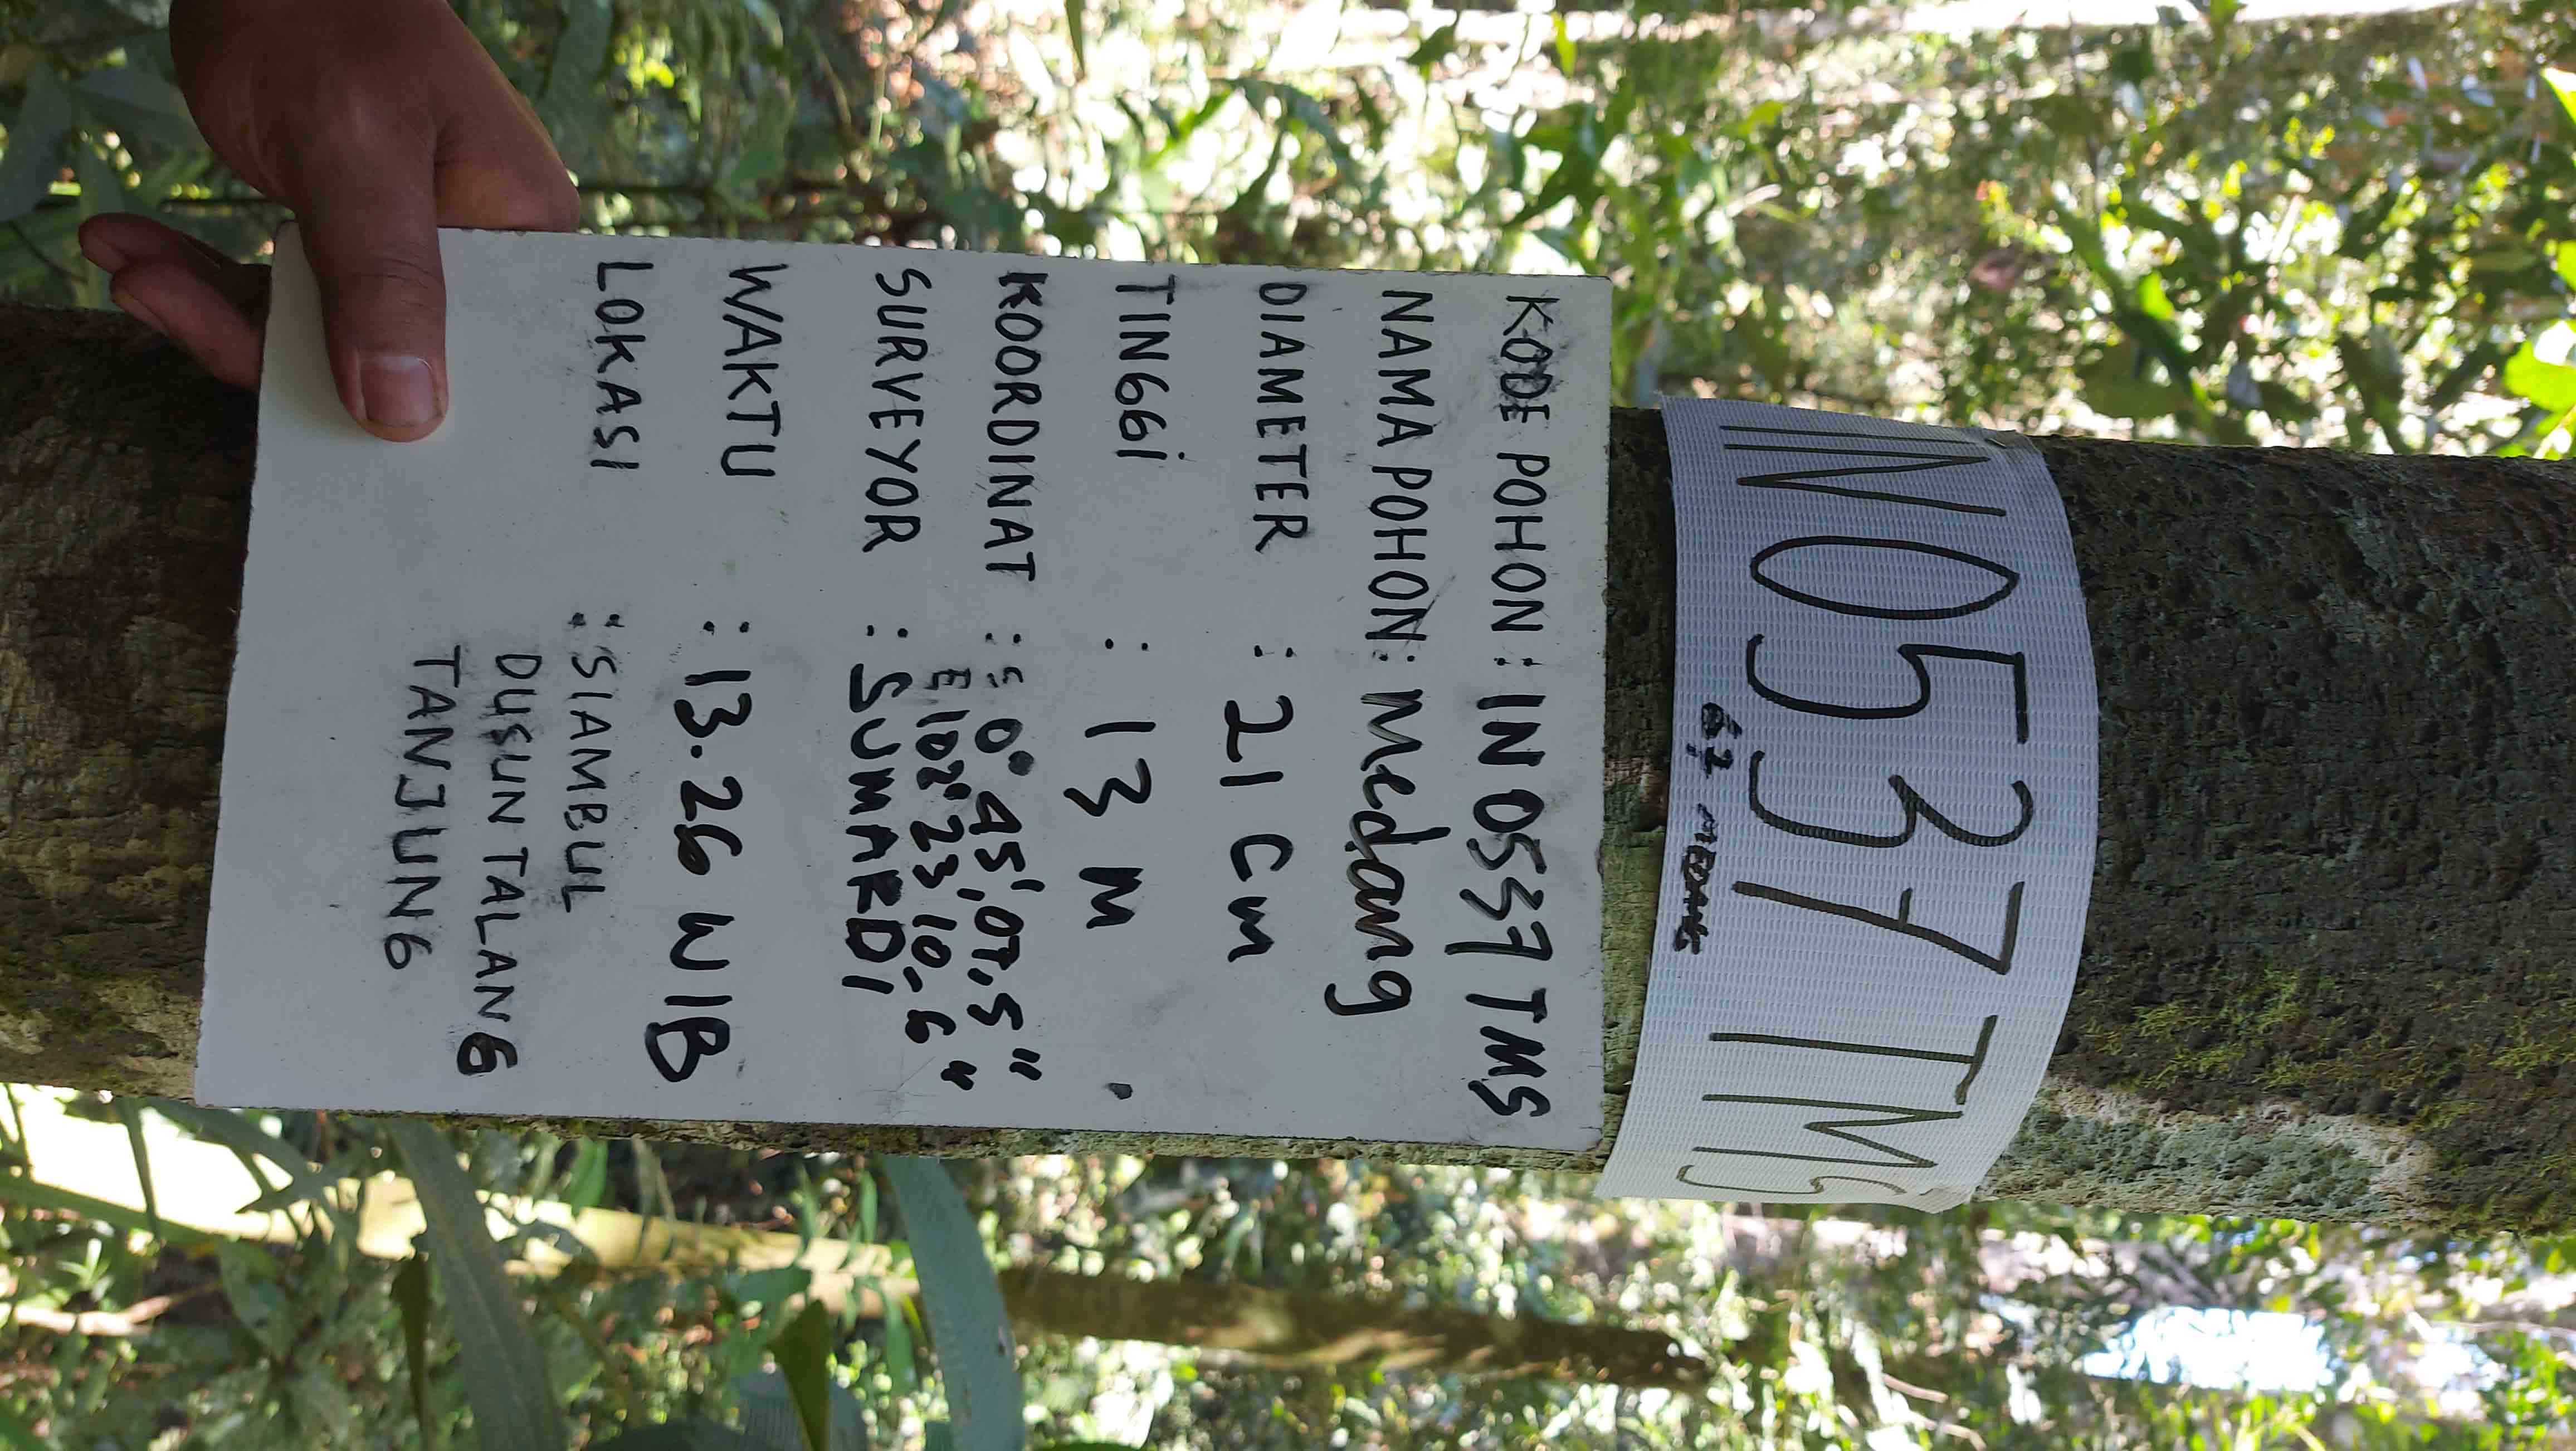 IN0537 TMS
62 MEDANG
KODE POHON : IN 0537 TMS
NAMA POHON : Medang
DIAMETER : 21 Cm
TINGGi : 13 M
KOORDINAT : S 0° 45', 07,5"
E 102° 23' 10,6"
SURVEYOR : SUMARDI
WAKTU : 13.26 WIB
LOKASI : SIAMBUL
DUSUN TALANG
TANJUNG